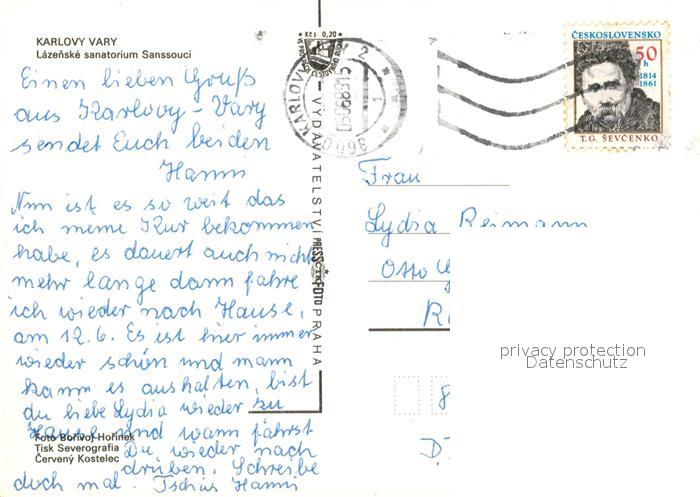 KARLOVY VARY
Lázeňské sanatorium Sanssouci
Einen lieben Gruß
aus Karlovy-Vary
sendet Euch beiden
Hanni
Nun ist es so weit das
ich meine Kur bekommen
habe, es dauert auch nicht
mehr lange dann fahre
ich wieder nach Hause,
am 12.6. Es ist hier immer
wieder schön und mann
kann es aushalten, bist
du liebe Lydia wieder zu
Hause und wann fährst
Du wieder nach
drüben. Schreibe
doch mal. Tschüs Hanni
Foto Bořivoj Hořínek
Tisk Severografia
Červený Kostelec
Kčs 0,20
VYDAVATELSTVÍ PRESSFOTO PRAHA
KARLOVY
2
1
360 06
ČESKOSLOVENSKO
50
h
1814
1861
T. G. ŠEVČENKO
Frau
Lydia Reimann
Otto
privacy protection
Datenschutz
8